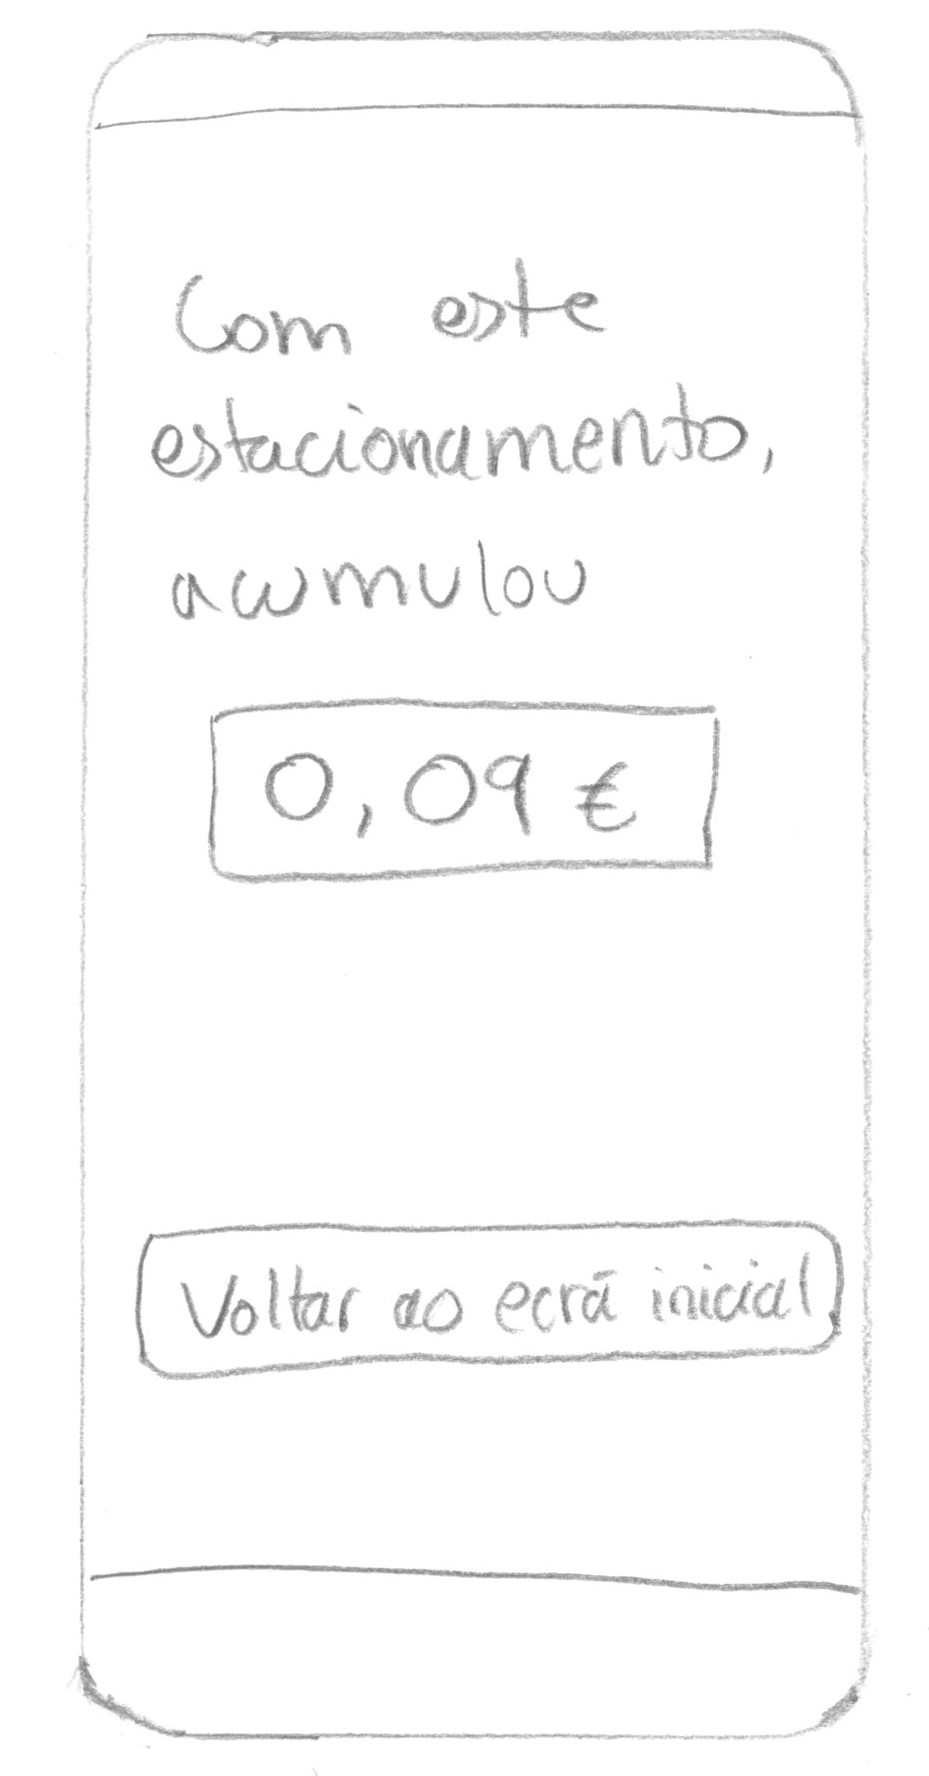 Com este
estacionamento,
acumulou
0,09 €
Voltar ao ecrã inicial